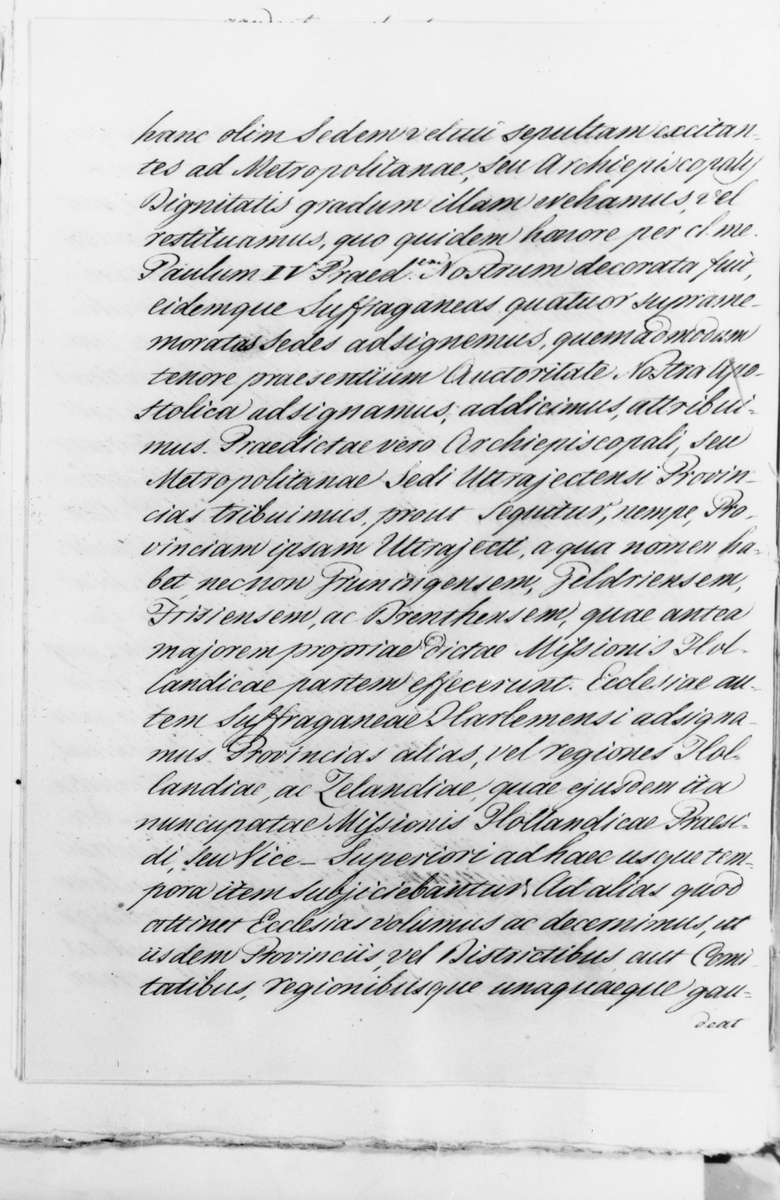 hanc olim Sedem veluti sepultam excitan-
tes ad Metropolitanae, seu Archiepiscopalis
Dignitatis gradum illam evehamus, vel
restituamus, quo quidem honore per cl. me.
Paulum IV Praed.em Nostrum decorata fuit,
eidemque Suffraganeas quatuor suprame-
moratas Sedes adsignemus, quemadmodum
tenore praesentium Auctoritate Nostra Apo-
stolica adsignamus, addicimus, attribui-
mus. Praedictae vero Archiepiscopali, seu
Metropolitanae Sedi Ultrajectensi Provin-
cias tribuimus, prout sequitur, nempe, Pro-
vinciam ipsam Ultrajecti, a qua nomen ha-
bet, necnon Gruningensem, Geldriensem,
Frisiensem, ac Drenthensem, quae antea
majorem propriae dictae Missionis Hol-
landicae partem effecerunt. Ecclesiae au-
tem Suffraganeae Harlemensi adsigna-
mus Provincias alias, vel regiones Hol-
landiae, ac Zelandiae, quae ejusdem ita
nuncupatae Missionis Hollandicae Praesi-
di, seu Vice-Superiori ad haec usque tem-
pora item subjiciebantur. Ad alias quod
attinet Ecclesias volumus ac decernimus, ut
iisdem Provinciis, vel Districtibus aut Comi-
tatibus, regionibusque unaquaeque gau-
deat